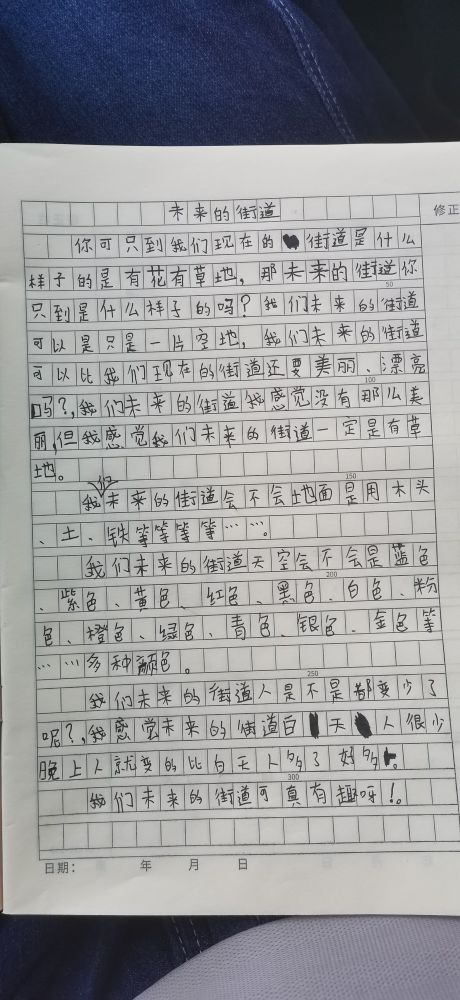 未来的街道
修正
你可只到我们现在的街道是什么
样子的是有花有草地，那未来的街道你
50
只到是什么样子的吗？我们未来的街道
可以是只是一片空地，我们未来的街道
可以比我们现在的街道还要美丽、漂亮
100
吗？，我们未来的街道我感觉没有那么美
丽，但我感觉我们未来的街道一定是有草
地。
150
我们未来的街道会不会地面是用木头
、土、铁等等等等……。
我们未来的街道天空会不会是蓝色
200
、紫色、黄色、红色、黑色、白色、粉
色、橙色、绿色、青色、银色、金色等
……多种颜色。
250
我们未来的街道人是不是都变少了
呢？，我感觉未来的街道白天人很少
晚上人就变的比白天人多了好多。
300
我们未来的街道可真有趣呀！。
日期： 年 月 日